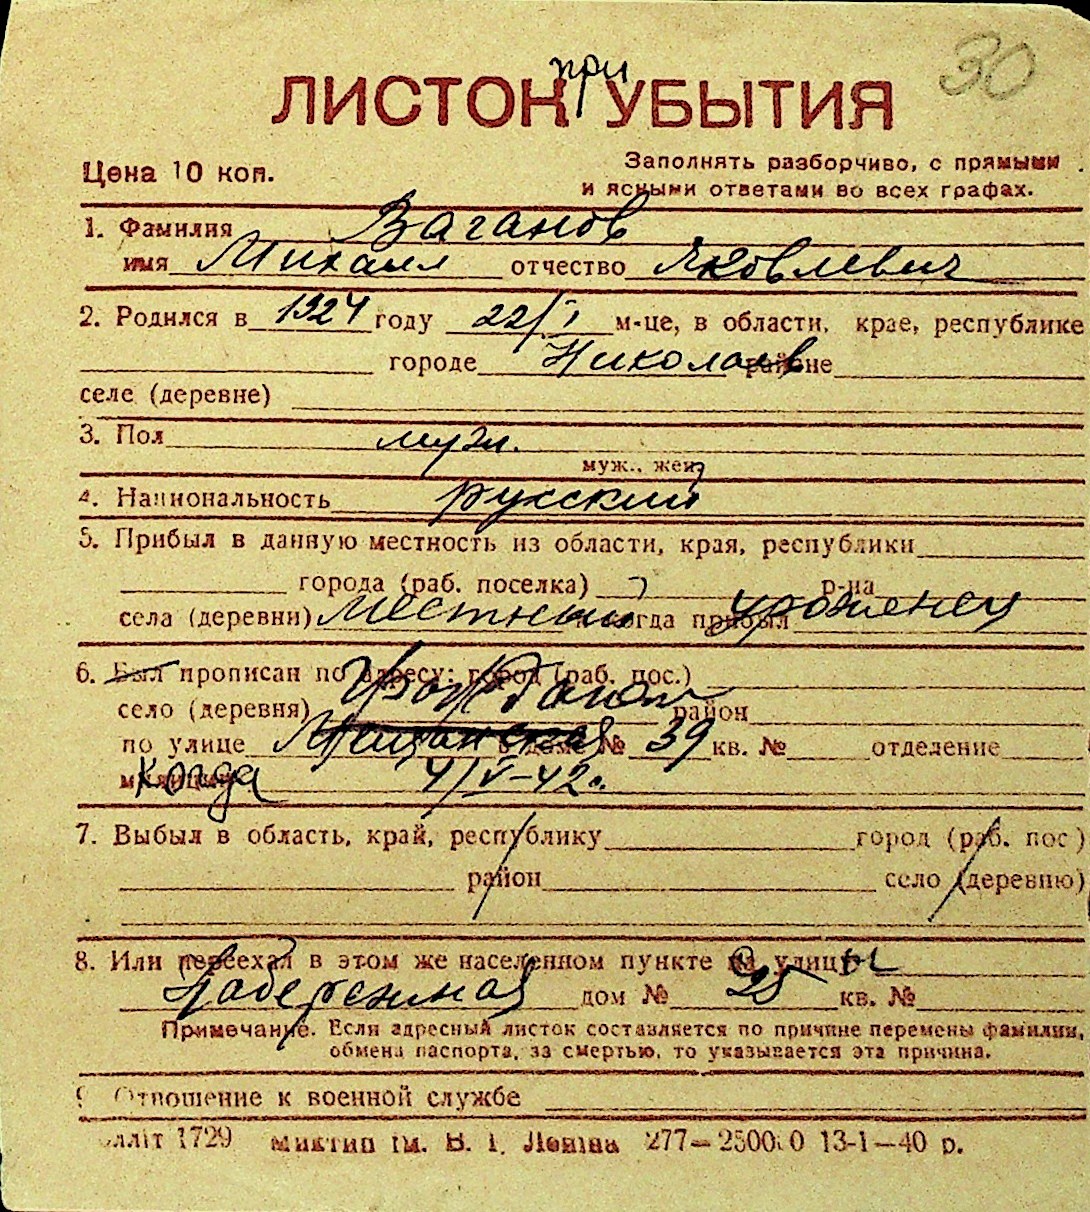 30
при
ЛИСТОК УБЫТИЯ
Цена 10 коп.
Заполнять разборчиво, с прямыми
и ясными ответами во всех графах.
1. Фамилия Ваганов
имя Михаил отчество Яковлевич
2. Родился в 1924 году 22/I м-це, в области, крае, республике
городе Николаев районе
селе (деревне)
3. Пол муж.
муж., жен
4. Национальность русский
5. Прибыл в данную местность из области, края, республики
города (раб. поселка) р-на
села (деревни) местный и когда прибыл уроженец
6. Был прописан по адресу: город (раб. пос.)
село (деревня) район
по улице Мещанская в доме № 39 кв. № отделение
милиции Когда 4/V-42г.
7. Выбыл в область, край, республику город (раб. пос)
район село (деревню)
8. Или переехал в этом же населенном пункте на улицы
Набережная дом № 25 кв. №
Примечание. Если адресный листок составляется по причине перемены фамилии,
обмена паспорта, за смертью, то указывается эта причина.
9 Отношение к военной службе
1729 ім. В. І. Леніна 277— 13-1—40 р.